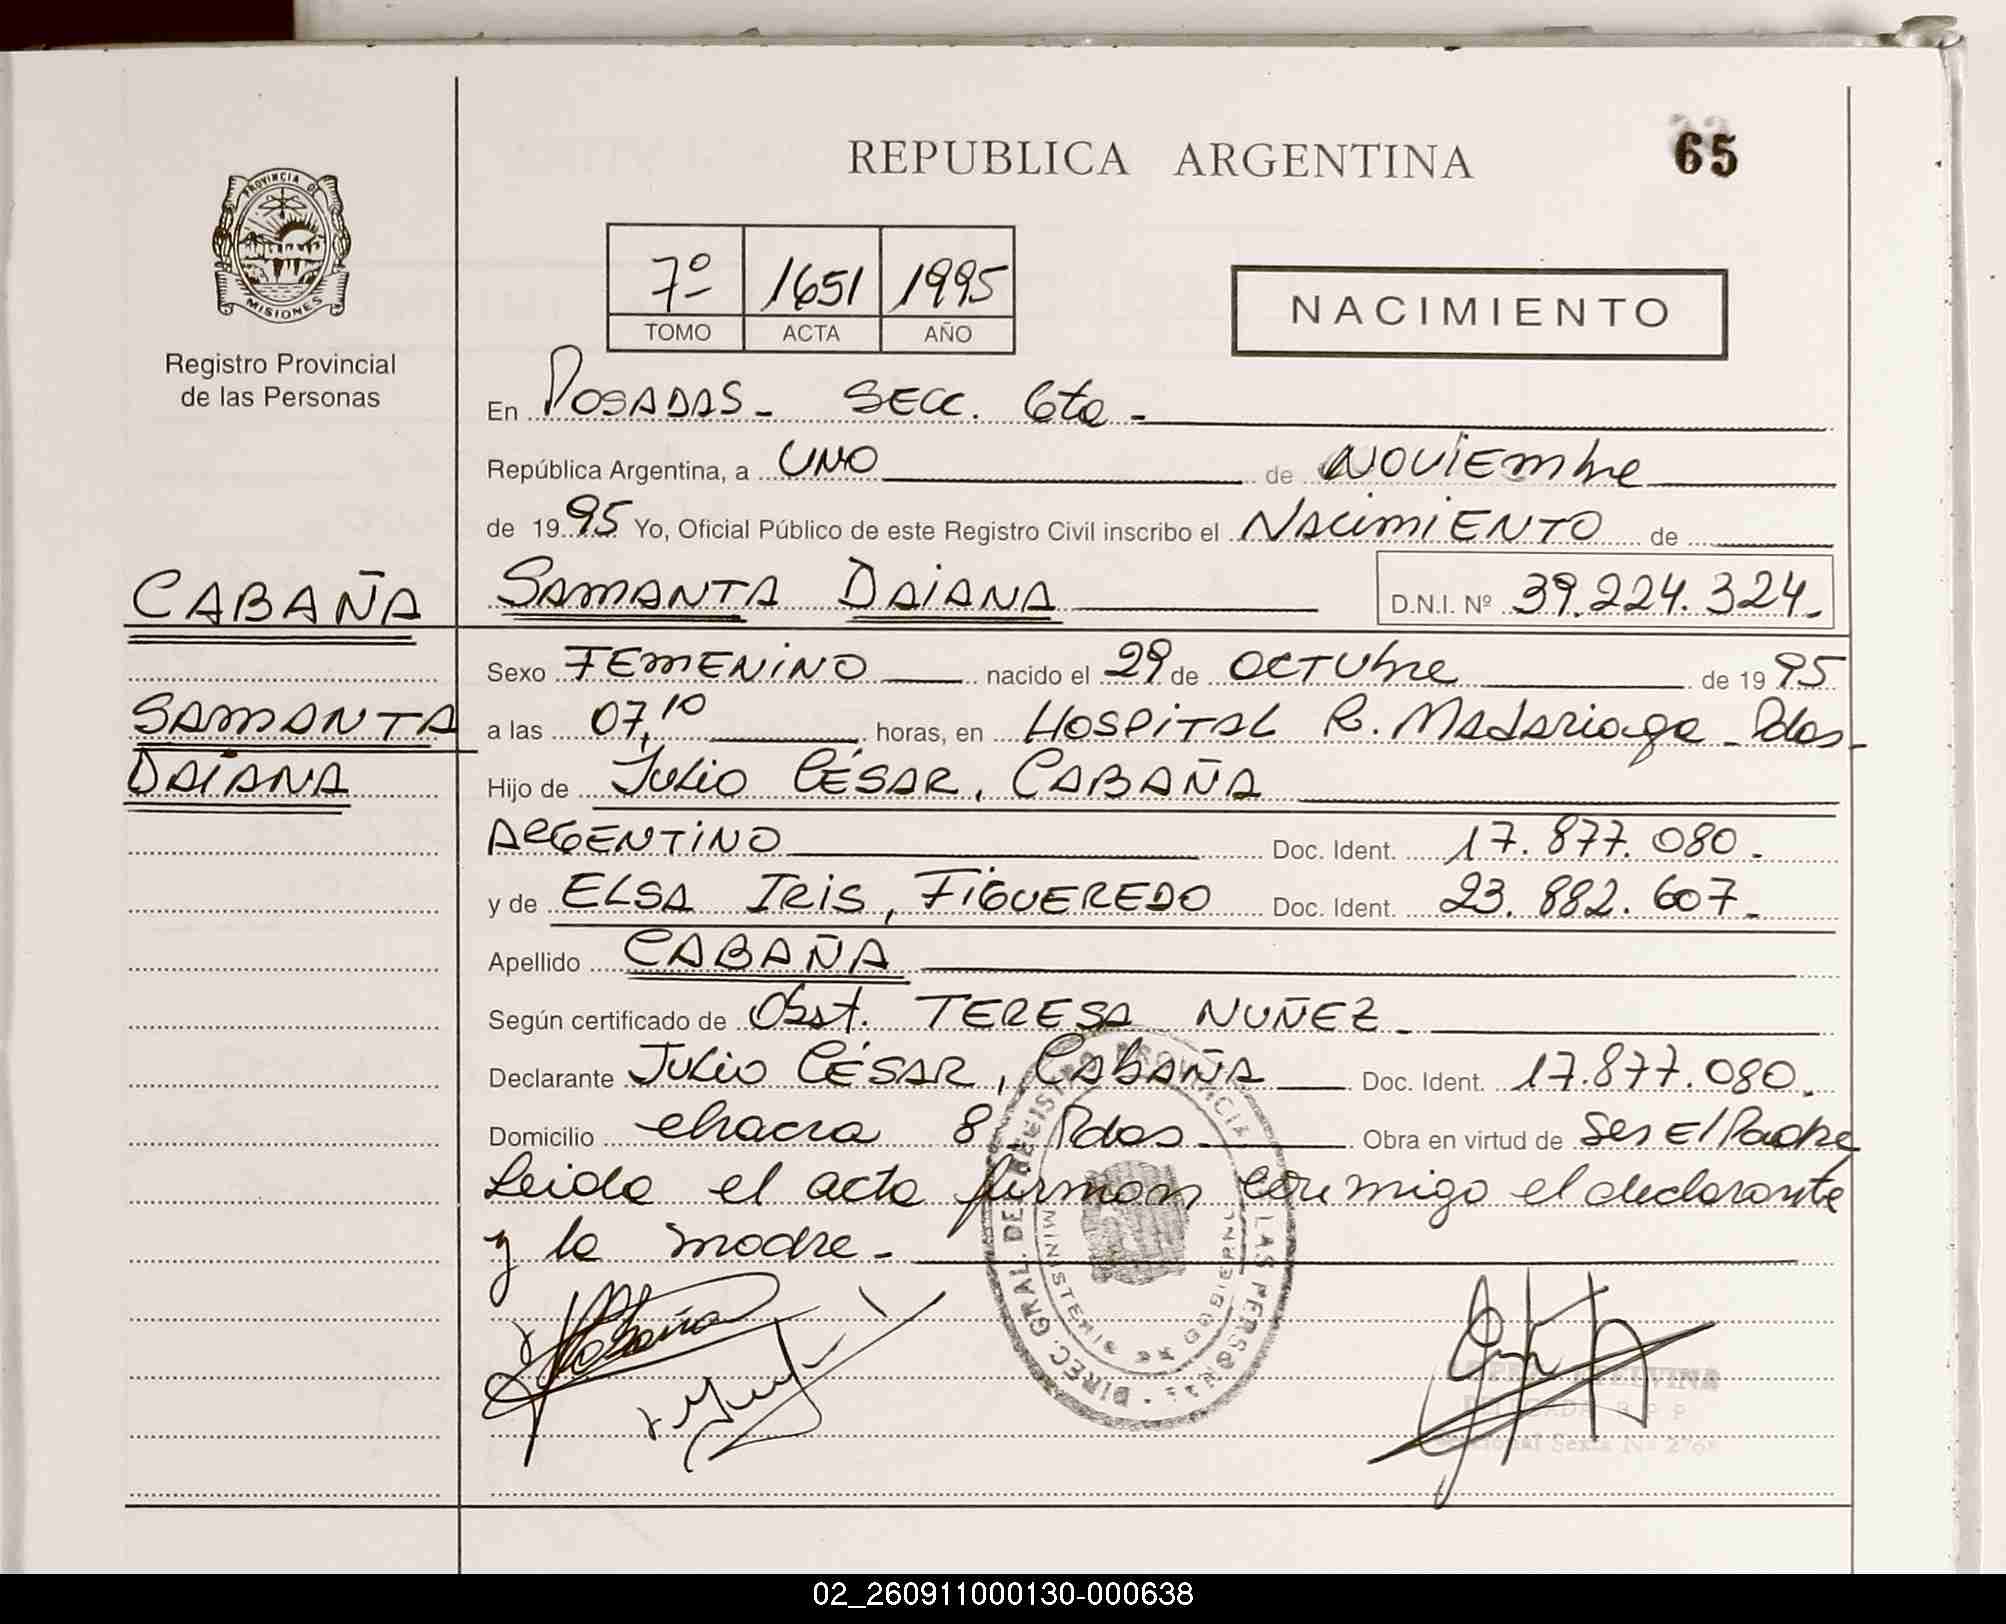 REPUBLICA ARGENTINA
65
PROVINCIA DE
MISIONES
Registro Provincial
de las Personas
7º 1651 1995
TOMO ACTA AÑO
NACIMIENTO
En POSADAS - SECC. 6ta -
República Argentina, a UNO de NOVIEMbre
de 1995 Yo, Oficial Público de este Registro Civil inscribo el NACIMIENTO de
CABAÑA
SAMANTA DAIANA D.N.I. Nº 39.224.324-
Sexo FEMENINO nacido el 29 de OCTUbre de 1995
SAMANTA
DAIANA
a las 07,10 horas, en HOSPITAL R. Madariaga - Pdas-
Hijo de JULIO CÉSAR, CABAÑA
ARGENTINO Doc. Ident. 17.877.080-
y de ELSA IRIS, FIGUEREDO Doc. Ident. 23.882.607-
Apellido CABAÑA
Según certificado de Obst. TERESA NUÑEZ-
Declarante JULIO CÉSAR, CABAÑA Doc. Ident. 17.877.080.
Domicilio chacra 8 Pdas Obra en virtud de ser El Padre
Leida el acta firman conmigo el declarante
y la madre-
Cabaña
DIREC. GRAL. DE REGISTRO PROVINCIAL LAS PERSONAS
MINISTERIO DE GOBIERNO
02_260911000130-000638